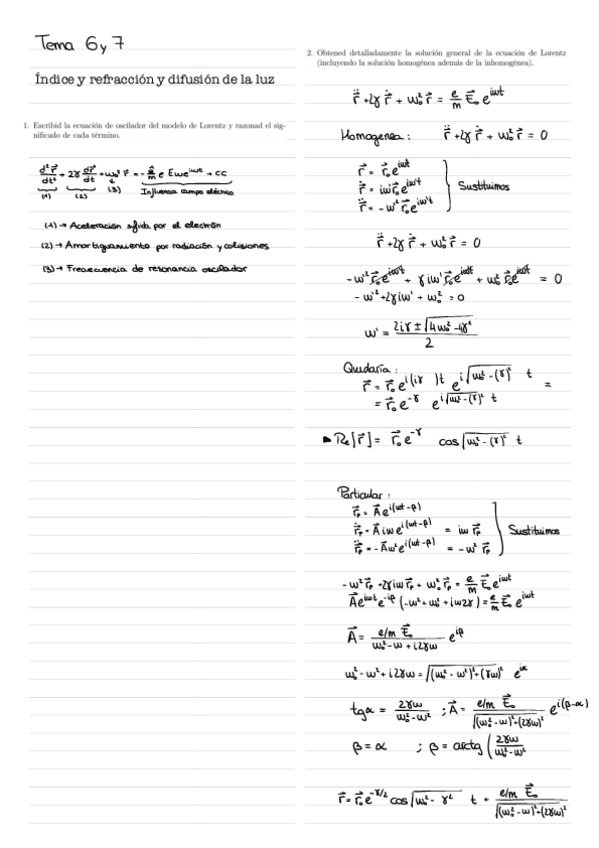 Tema 6 y 7
Índice y refracción y difusión de la luz
1. Escribid la ecuación de oscilador del modelo de Lorentz y razonad el sig-
nificado de cada término.
(1) (2) (3) Influencia campo eléctrico
(1) → Aceleración sufrida por el electrón
(2) → Amortiguamiento por radiación y colisiones
(3) → Frecuencia de resonancia oscilador
2. Obtened detalladamente la solución general de la ecuación de Lorentz
(incluyendo la solución homogénea además de la inhomogénea).
r̈ + 2γ ṙ + ω₀² r = e/m E₀ e^{iωt}
Homogenea: r̈ + 2γ ṙ + ω₀² r = 0
r = r₀ e^{iω't}
ṙ = iω' r₀ e^{iω't}
r̈ = -ω'² r₀ e^{iω't}
Sustituimos
r̈ + 2γ ṙ + ω₀² r = 0
-ω'² r₀ e^{iω't} + γiω' r₀ e^{iω't} + ω₀² r₀ e^{iω't} = 0
-ω'² + 2γiω' + ω₀² = 0
ω' = (2iγ ± √(4ω₀² - 4γ²)) / 2
Quedaría:
r = r₀ e^{i(iγ )t} e^{i√(ω₀² - (γ)²) t} =
= r₀ e^{-γ} e^{i√(ω₀² - (γ)²) t}
▸ Re[r] = r₀ e^{-γ} cos √(ω₀² - (γ)²) t
Particular:
rₚ = A e^{i(ωt - β)}
ṙₚ = A iω e^{i(ωt - β)} = iω rₚ
r̈ₚ = -Aω² e^{i(ωt - β)} = -ω² rₚ
Sustituimos
-ω² rₚ + 2γiω rₚ + ω₀² rₚ = e/m E₀ e^{iωt}
A e^{iωt} e^{-iβ} (-ω² + ω₀² + iω2γ) = e/m E₀ e^{iωt}
A = (e/m E₀) / (ω₀² - ω + i2γω) e^{iβ}
ω₀² - ω² + i2γω = √((ω₀² - ω²)² + (γω)²) e^{iα}
tgα = 2γω / (ω₀² - ω²) ; A = (e/m E₀) / √((ω₀² - ω)² + (2γω)²) e^{i(β-α)}
β = α ; β = arctg (2γω / (ω₀² - ω²)
r = r₀ e^{-γ/2} cos √(ω₀² - γ²) t + (e/m E₀) / √((ω₀² - ω)² + (2γω)²)